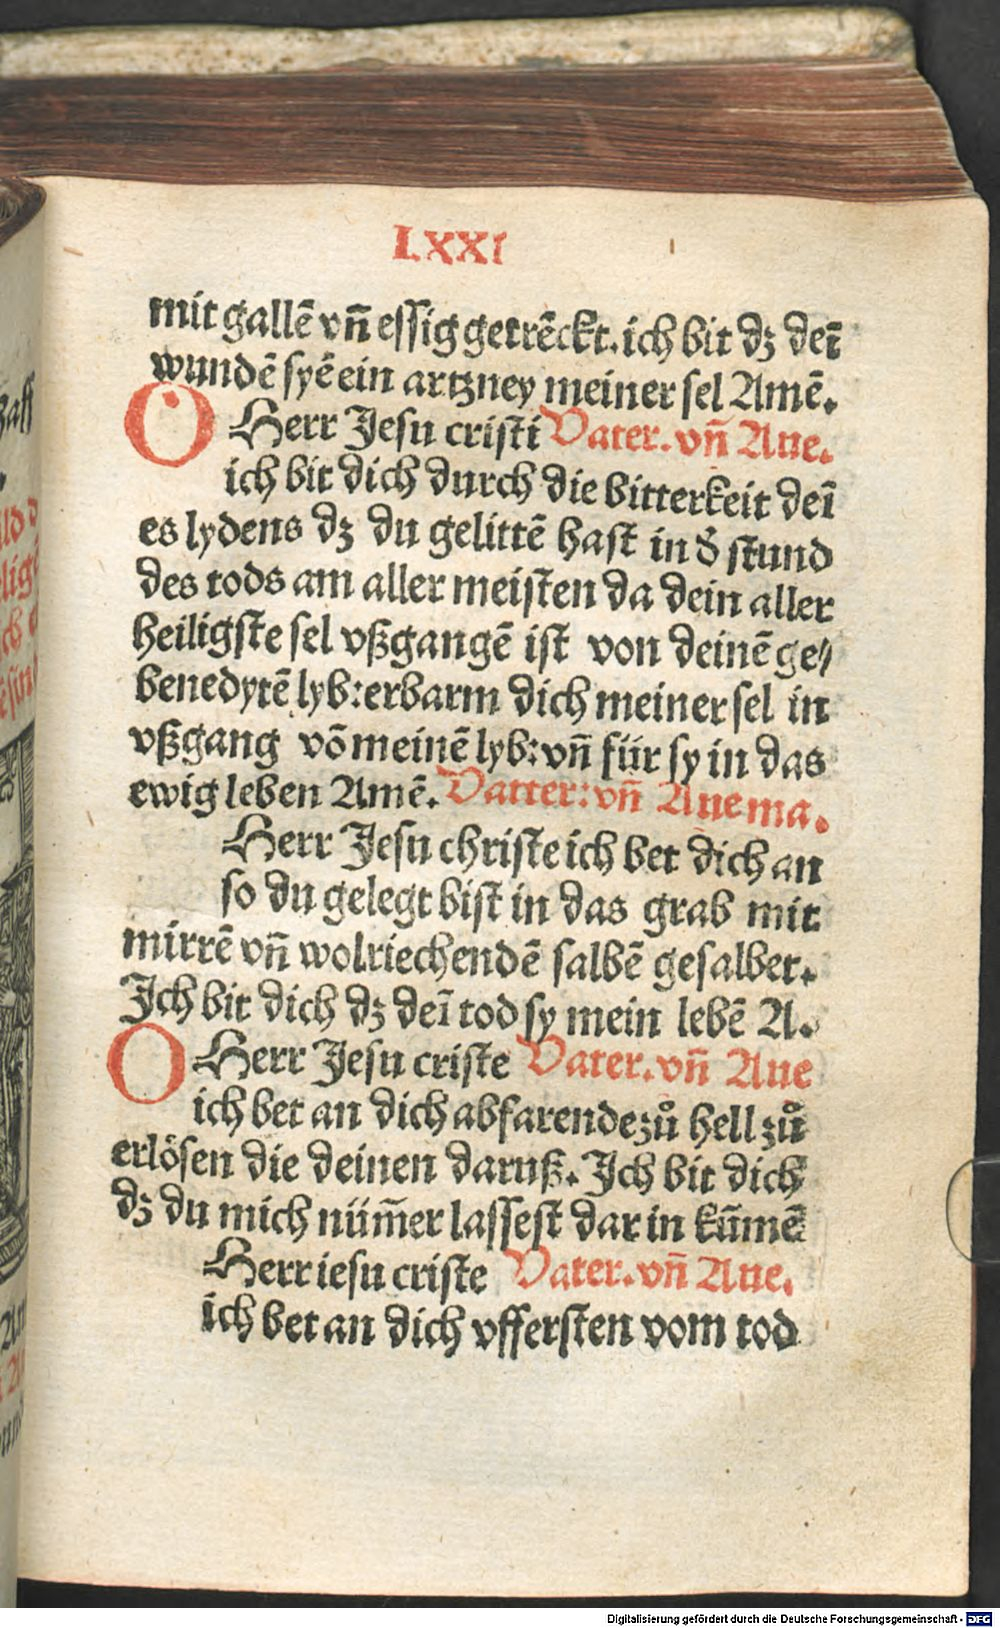 LXXI
mit gallē vn̄ essig getrēckt. ich bit dʒ deī
wundē syē ein artzney meiner sel Amē.
O Herr Jesu cristi Vater. vn̄ Aue.
ich bit dich durch die bitterkeit deī
es lydens dʒ du gelittē hast in d̕ stund
des tods am aller meisten da dein aller
heiligste sel vßgangē ist von deinē ge⸗
benedytē lyb: erbarm dich meiner sel in
vßgang vō meinē lyb: vn̄ für sy in das
ewig leben Amē. Vatter: vn̄ Aue ma.
Herr Jesu christe ich bet dich an
so du gelegt bist in das grab mit
mirrē vn̄ wolriechendē salbē gesalbet.
Ich bit dich dʒ deī tod sy mein lebē A.
O Herr Jesu criste Vater. vn̄ Aue
ich bet an dich abfarende zů hell zů
erlösen die deinen daruß. Ich bit dich
dʒ du mich nüm̄er lassest dar in kūmē
Herr iesu criste Vater. vn̄ Aue.
ich bet an dich vffersten vom tod
Digitalisierung gefördert durch die Deutsche Forschungsgemeinschaft - DFG